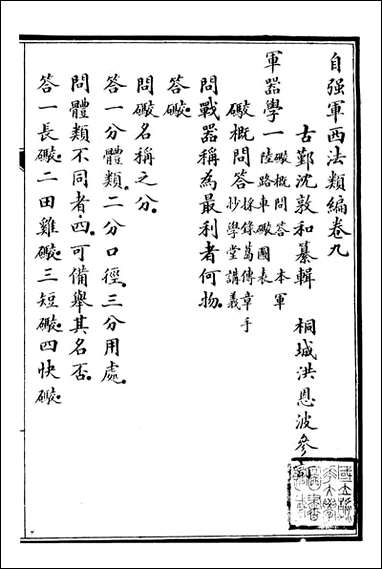 自强軍西法類編卷九
古鄞沈敦和纂輯　桐城洪恩波參
軍器學一　礮概問答　本軍
陸路車礮圖表
礮概問答　採錄葛傳章手
抄學堂講義
問戰器稱為最利者何物
答礮
問礮名稱之分
答一分體類二分口徑三分用處
問體類不同者四可備舉其名否
答一長礮二田雞礮三短礮四快礮